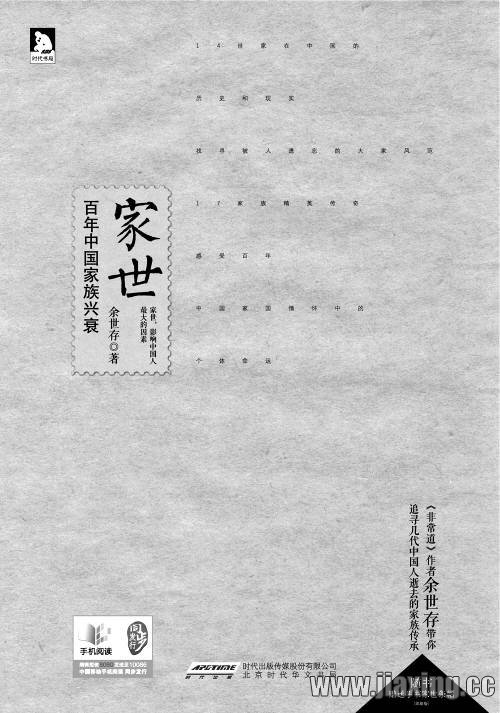 时代书局
14世家在中国的
历史和现实
找寻被人遗忘的大家风范
17家族精英传奇
感受百年
中国家国情怀中的
个体命运
家世
百年中国家族兴衰
家世，影响中国人
最大的因素
余世存◎著
《非常道》作者余世存带你
追寻几代中国人逝去的家族传承
手机阅读
同步发行
中国移动手机阅读 同步发行
APGTIME
时代出版
时代出版传媒股份有限公司
北京时代华文书局
www.jiaxing.cc